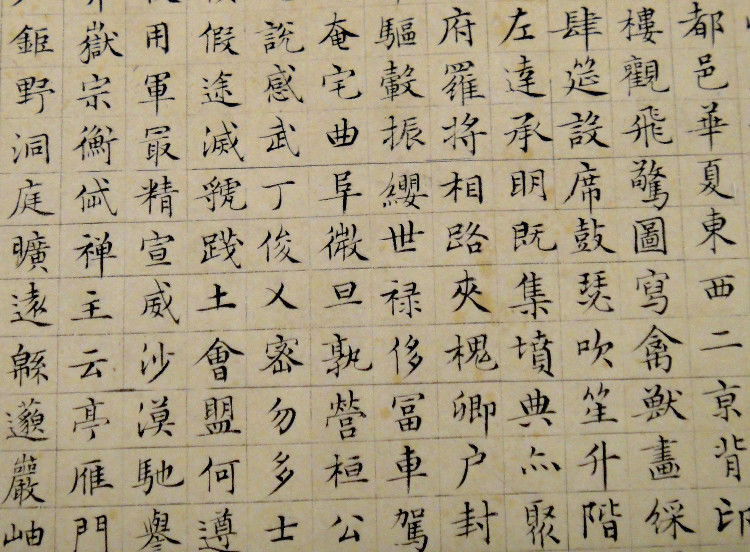 都邑華夏東西二亰背邙
樓觀飛驚圖寫禽獸畫綵
肆筵設席鼓瑟吹笙升階
左達承眀既集墳典亦聚
府羅將相路夾槐卿户封
驅轂振纓世禄侈冨車駕
奄宅曲阜微旦孰營桓公
説感武丁俊乂密勿多士
假途滅虢踐土會盟何遵
用軍最精宣威沙漠馳譽
嶽宗衡岱禪主云亭雁門
鉅野洞庭曠遠緜邈巖岫